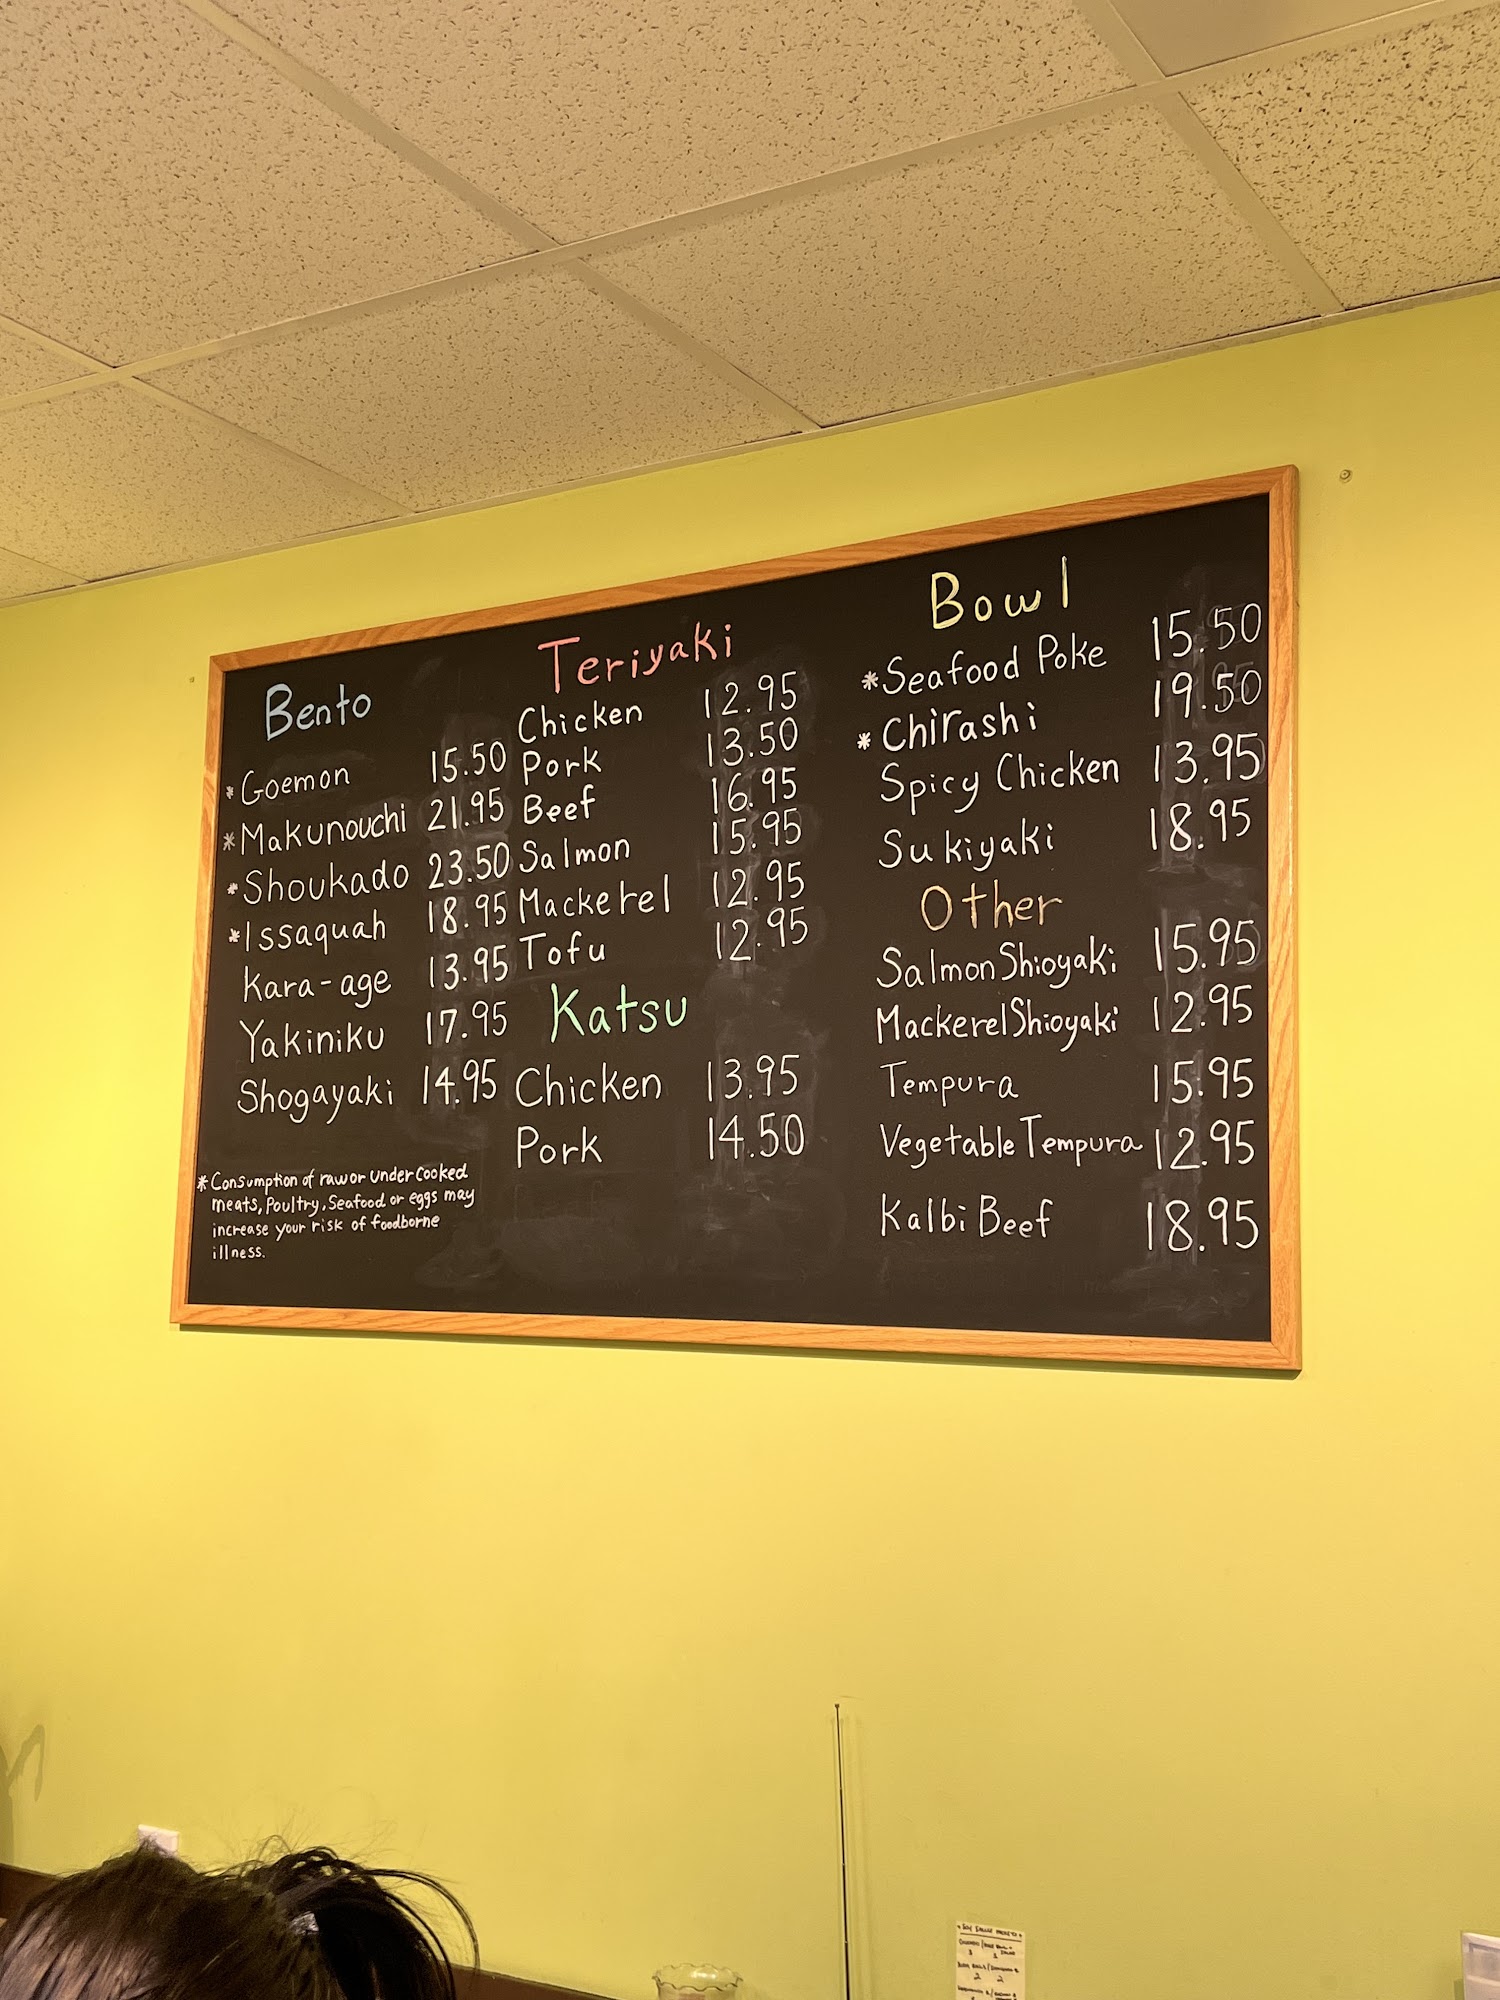 Bento
*Goemon 15.50
*Makunouchi 21.95
*Shoukado 23.50
*Issaquah 18.95
Kara-age 13.95
Yakiniku 17.95
Shogayaki 14.95
*Consumption of raw or undercooked
meats, Poultry, Seafood or eggs may
increase your risk of foodborne
illness.
Teriyaki
Chicken 12.95
Pork 13.50
Beef 16.95
Salmon 15.95
Mackerel 12.95
Tofu 12.95
Katsu
Chicken 13.95
Pork 14.50
Bowl
*Seafood Poke 15.50
*Chirashi 19.50
Spicy Chicken 13.95
Sukiyaki 18.95
Other
Salmon Shioyaki 15.95
Mackerel Shioyaki 12.95
Tempura 15.95
Vegetable Tempura 12.95
Kalbi Beef 18.95